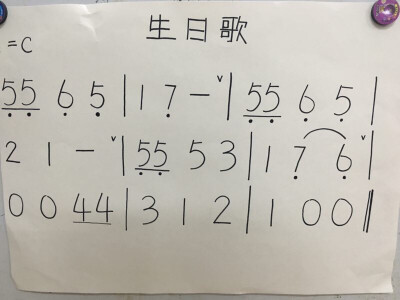 生日歌
=C
55 6 5 | 1 7 — ∨ | 55 6 5 |
2 1 — ∨ | 55 5 3 | 1 7 6 ∨ |
0 0 44 | 3 1 2 | 1 0 0 ‖